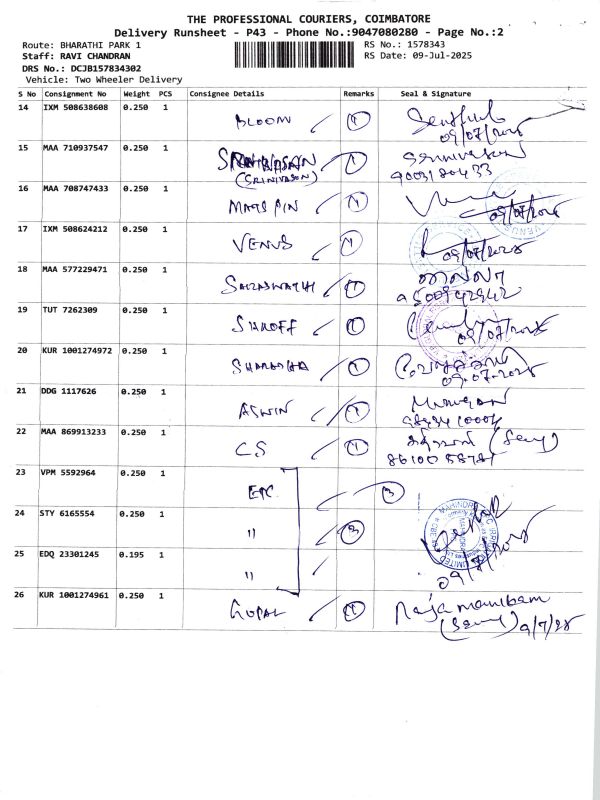 THE PROFESSIONAL COURIERS, COIMBATORE
Delivery Runsheet - P43 - Phone No.:9047080280 - Page No.:2
Route: BHARATHI PARK 1
RS No.: 1578343
Staff: RAVI CHANDRAN
RS Date: 09-Jul-2025
DRS No.: DCJB157834302
Vehicle: Two Wheeler Delivery
S No Consignment No Weight PCS Consignee Details Remarks Seal & Signature
14 IXM 508638608 0.250 1
BLOOM 1
09/07/2025
15 MAA 710937547 0.250 1
1
(SRINIVASAN)
16 MAA 708747433 0.250 1
1
09/07/2025
17 IXM 508624212 0.250 1
VENUS 1
09/07/2025
18 MAA 577229471 0.250 1
SARASWATHI 1
9500942942
19 TUT 7262309 0.250 1
SHROFF 1
09/07/2025
20 KUR 1001274972 0.250 1
SHARADHA 1
09-07-2025
21 DDG 1117626 0.250 1
ASWIN 1
Murugan
22 MAA 869913233 0.250 1
C.S 1
23 VPM 5592964 0.250 1
EPC 3
24 STY 6165554 0.250 1
" 3
25 EDQ 23301245 0.195 1
"
09/7/2025
26 KUR 1001274961 0.250 1
GOPAL 1 Raja manikam
9/7/25